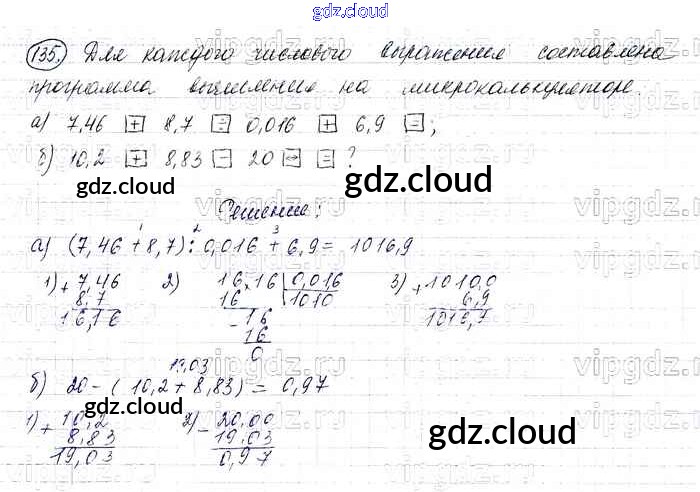 gdz.cloud
135. Для каждого числового выражения составлена
программа вычисления на микрокалькуляторе.
а) 7,46 + 8,7 ÷ 0,016 + 6,9 = ;
б) 10,2 + 8,83 − 20 ↔ = ?
gdz.cloud gdz.cloud
Решение:
1 2 3
а) (7,46 + 8,7) : 0,016 + 6,9 = 1016,9
1) + 7,46 2) 16,16 | 0,016 3) + 1010,0
8,7 16 1010 6,9
16,16 − 16 1016,9
16
0
19,03
б) 20 − ( 10,2 + 8,83 ) = 0,97
gdz.cloud
1) + 10,2 2) − 20,00
8,83 19,03
19,03 0,97
gdz.cloud
vipgdz.ru